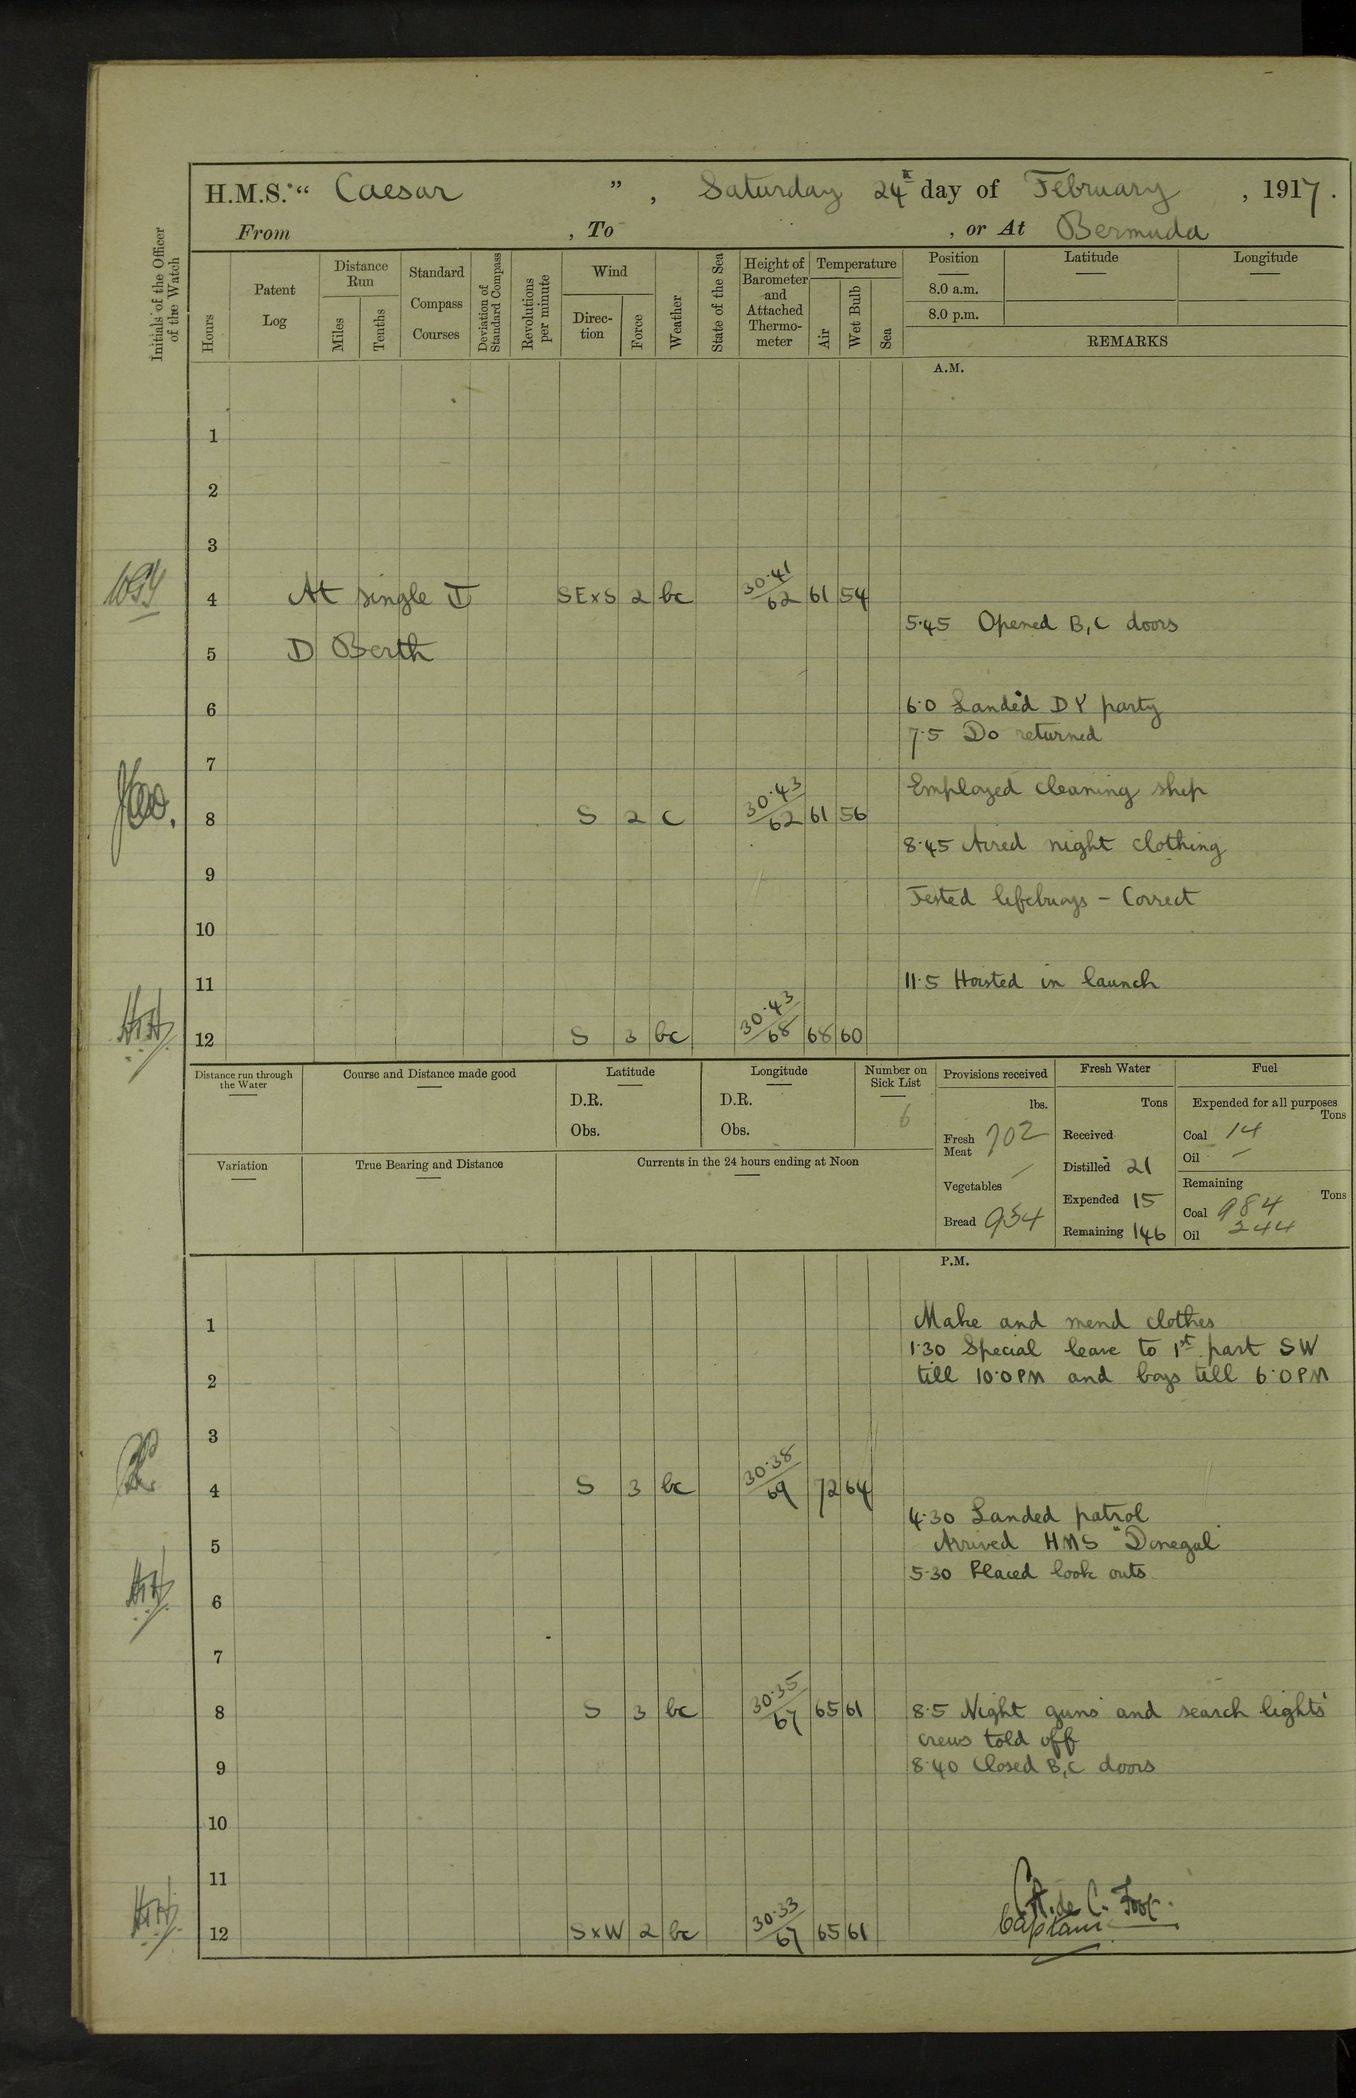 H.M.S. "Caesar", Saturday 24th day of February, 1917.
From , To , or At Bermuda
Initials of the Officer of the Watch
Hours
Patent Log
Distance Run
Miles
Tenths
Standard Compass Courses
Deviation of Standard Compass
Revolutions per minute
Wind
Direction
Force
Weather
State of the Sea
Height of Barometer and Attached Thermometer
Temperature
Air
Wet Bulb
Sea
Position
8.0 a.m.
8.0 p.m.
Latitude
Longitude
REMARKS
A.M.
1
2
3
4 At single SExS 2 bc 30.41 62 61 54
5.45 Opened B, C doors
5 D Berth
6 6.0 Landed DY party
7.5 Do returned
7
Employed cleaning ship
8 S 2 c 30.43 62 61 56
8.45 Aired night clothing
9
Tested lifebuoys - Correct
10
11 11.5 Hoisted in launch
12 S 3 bc 30.43 68 68 60
Distance run through the Water
Course and Distance made good
Latitude
D.R.
Obs.
Longitude
D.R.
Obs.
Number on Sick List
6
Provisions received
lbs.
Fresh Meat 702
Vegetables —
Bread 954
Fresh Water
Tons
Received
Distilled 21
Expended 15
Remaining 146
Fuel
Expended for all purposes
Tons
Coal 14
Oil —
Remaining
Tons
Coal 984
Oil 244
Variation
True Bearing and Distance
Currents in the 24 hours ending at Noon
P.M.
1 Make and mend clothes
1.30 Special leave to 1st part SW
2 till 10.0 PM and boys till 6.0 PM
3
4 S 3 bc 30.38 69 72 64
4.30 Landed patrol
5 Arrived HMS "Donegal"
5.30 Placed look outs
6
7
8 S 3 bc 30.35 67 65 61 8.5 Night guns and search lights'
crews told off
9 8.40 Closed B, C doors
10
11
12 SxW 2 bc 30.33 67 65 61
de C. Foot
Captain